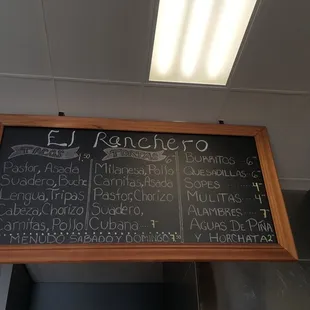 El Ranchero
TACOS 1.50
Pastor, Asada
Suadero, Buche
Lengua, Tripas
Cabeza, Chorizo
Carnitas, Pollo
TORTAS
Milanesa, Pollo
Carnitas, Asada
Pastor, Chorizo
Suadero,
Cubana 7
Burritos 6
Quesadillas 6
Sopes 4
Mulitas 4
Alambres 7
Aguas De Piña
y Horchata 2
Menudo Sabado y Domingo 7